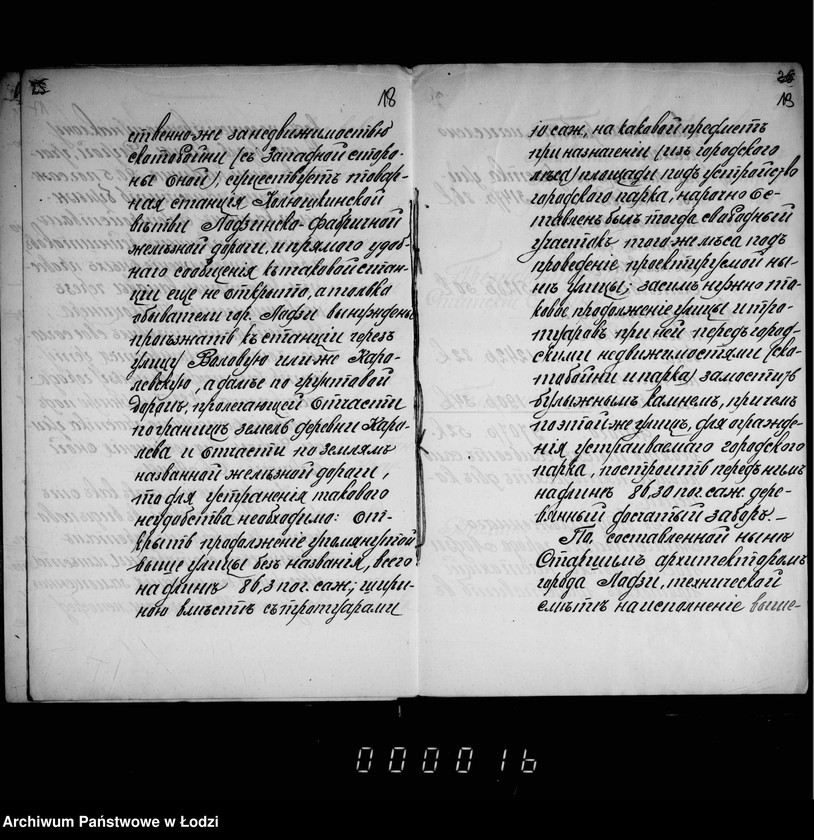 18
ственно-же за недвижимостью
скотобойни (съ Западной сторо-
ны оной), существуетъ товар-
ная станція Колюшкинской
вѣтви Лодзинско-фабричной
желѣзной дороги, и прямого удоб-
наго сообщенія къ таковой стан-
ціи еще не открыто, а только
обыватели гор. Лодзи вынуждены
проѣзжать къ станціи черезъ
улицу Воловую или же Каро-
левскую, а далѣе по грунтовой
дорогѣ, пролегающей отчасти
по границѣ земель деревни Каро-
лева и отчасти по землямъ
названной желѣзной дороги,
то для устраненія такового
неудобства необходимо: от-
крыть продолженіе упомянутой
выше улицы безъ названія, всего
на длинѣ 86,3 пог. саж; шири-
ною вмѣстѣ съ тротуарами
26
19
10 саж, на каковой предметъ
при назначеніи (изъ городского
лѣса) площади подъ устройство
городского парка, нарочно ос-
тавленъ былъ тогда свободный
участокъ того же лѣса подъ
проведеніе проектируемой ны-
нѣ улицы; засимъ нужно та-
ковое продолженіе улицы и тро-
туаровъ при ней передъ город-
скими недвижимостями (ско-
тобойни и парка) замостить
булыжнымъ камнемъ, причемъ
по этой же улицѣ, для огражде-
нія устраиваемаго городского
парка, построить передъ нимъ
на длинѣ 86,30 пог. саж. дере-
вянный досчатый заборъ.—
По, составленной нынѣ
Старшимъ архитекторомъ
города Лодзи, технической
смѣтѣ на исполненіе выше-
0000016
Archiwum Państwowe w Łodzi